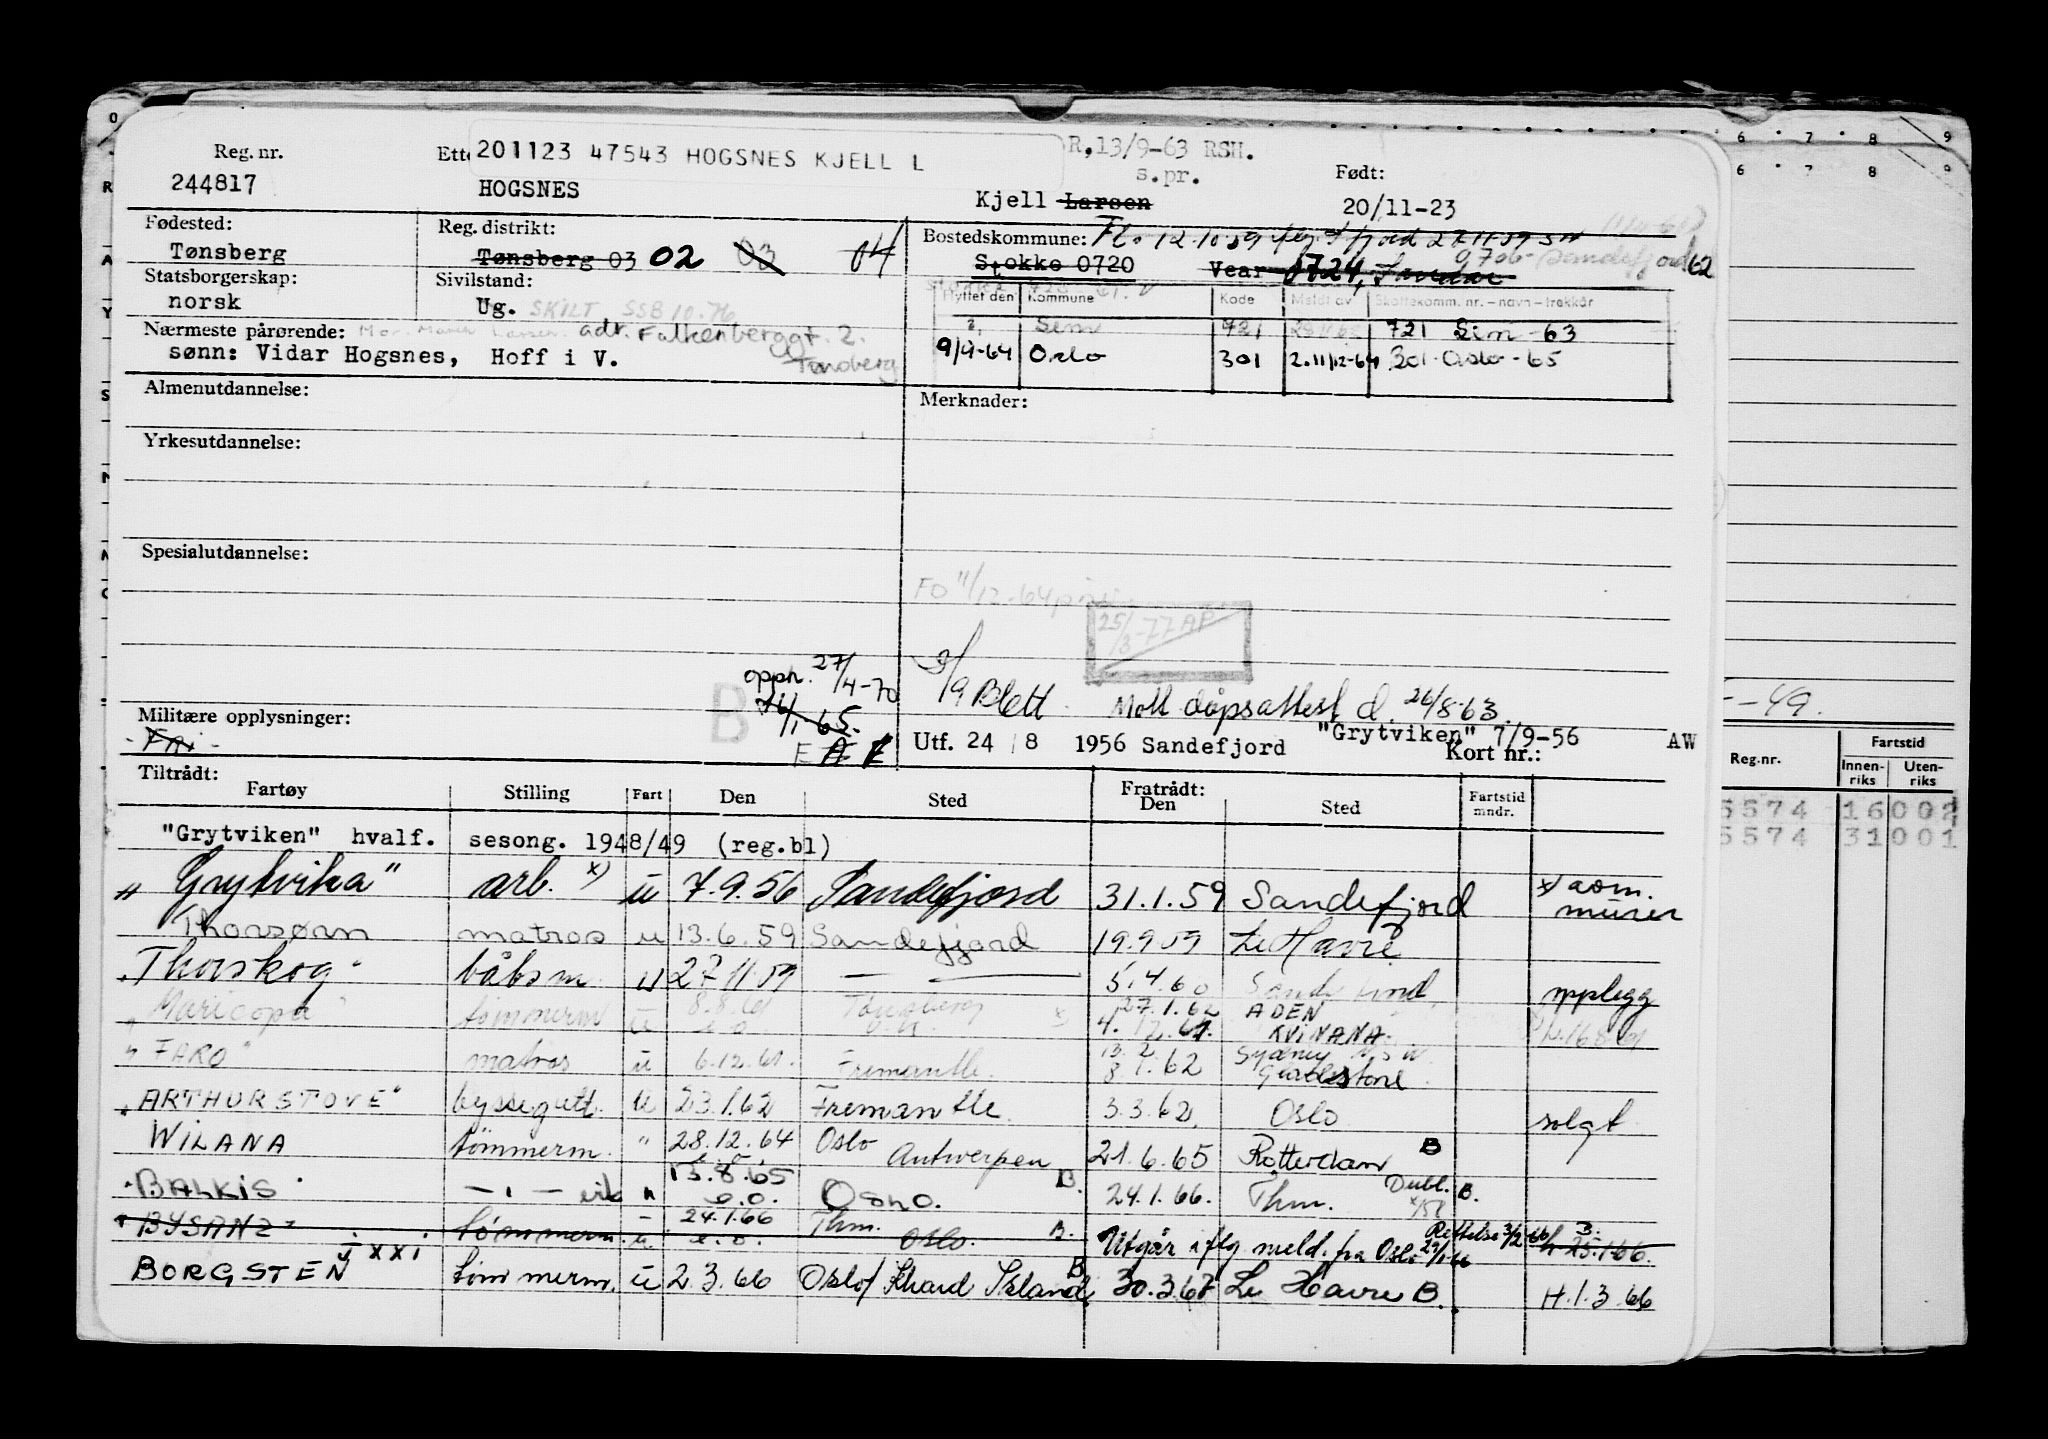 Reg. nr.
244817
Ette
201123 47543 HOGSNES KJELL L
HOGSNES
R,13/9-63 RSH.
s.pr.
Kjell Larsen
Født:
20/11-23
Fødested:
Tønsberg
Reg. distrikt:
Tønsberg 03 02 03 04
Bostedskommune:
Stokke 0720 Vear
Statsborgerskap:
norsk
Sivilstand:
Ug. SKILT SSB 10.76
Flyttet den Kommune Kode Meldt av Skattekomm. nr. – navn – trekkår
Sem 721 721 Sem -63
9/9-64 Oslo 301 2.11/12-64 301 Oslo - 65
Nærmeste pårørende: adr. Falkenberggt. 2.
sønn: Vidar Hogsnes, Hoff i V.
Almenutdannelse:
Merknader:
Yrkesutdannelse:
Spesialutdannelse:
FO 11/12-64
25/3-77 AF
opph. 27/4-70
B
Blett
Mott dåpsattest d. 26/8-63
Militære opplysninger:
Utf. 24 / 8 1956 Sandefjord "Grytviken" 7/9-56 AW
Kort nr.:
Tiltrådt:
Fartøy Stilling Fart Den Sted Fratrådt: Den Sted Fartstid mndr.
"Grytviken" hvalf. sesong. 1948/49 (reg.bl)
"Grytvika" arb. x) u 7.9.56 Sandefjord 31.1.59 Sandefjord x) asm. murer
Thorsørn matros u 13.6.59 Sandefjord 19.9.59 Le Havre
"Thorskog" båtsm u 27 11 59 — 5.4.60 opplegg
"Maricopa" tømmerm u 8.8.61 Tønsberg 27.1.62 ADEN
4.12.61. KVINANA.
"FARO" matros u 6.12.61. Fremantle. 13.2 Sydney
8.1.62 Gladstone
"ARTHUR STOVE" byssegutt. u 23.1.62 Fremantle. 3.3.62 Oslo solgt
WILANA tømmerm. " 28.12.64 Oslo Antwerpen 21.6.65 Rotterdam B
"BALKIS" — " — 13.8.65 Oslo. B. 24.1.66. Thm. Dubl. B.
"BYSANZ" tømmerm. u 24.1.66 Thm. Oslo. B. Utgår iflg meld. fra Oslo Rettelse 3/2-66 25.1.66.
j xxi
BORGSTEN tømmerm. u 2.3.66 Oslo/ Island B 30.3.67 Le Havre B. H.1.3.66
6 7 8 9
6 7 8 9
-49.
Reg.nr. Fartstid
Innenriks Utenriks
5574 16 002
5574 31 001